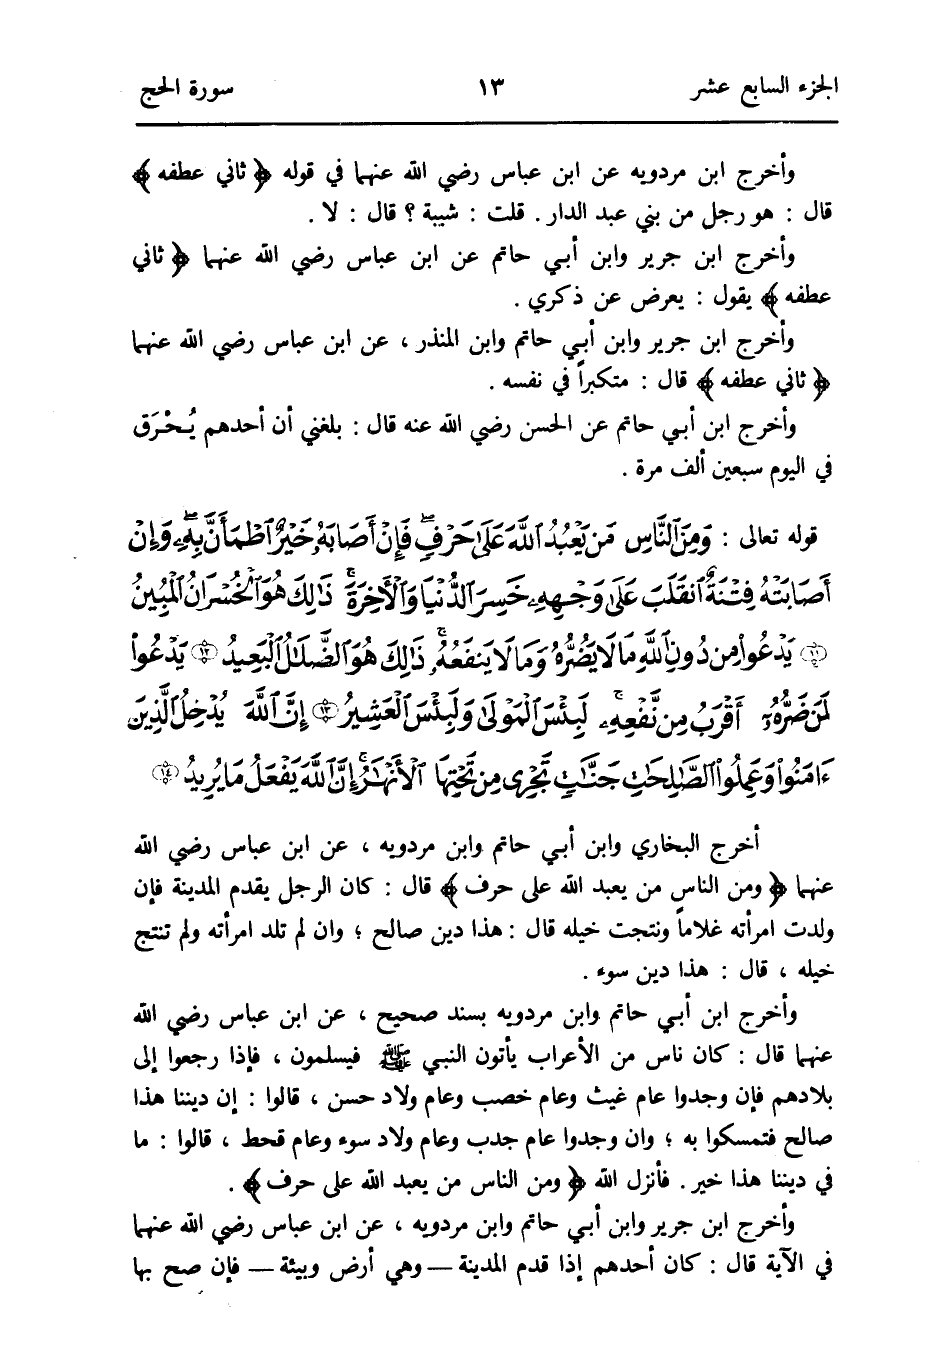 الجزء السابع عشر ١٣ سورة الحج
وأخرج ابن مردويه عن ابن عباس رضي الله عنهما في قوله ﴿ ثاني عطفه ﴾
قال : هو رجل من بني عبد الدار . قلت : شيبة ؟ قال : لا .
وأخرج ابن جرير وابن أبي حاتم عن ابن عباس رضي الله عنهما ﴿ ثاني
عطفه ﴾ يقول : يعرض عن ذكري .
وأخرج ابن جرير وابن أبي حاتم وابن المنذر ، عن ابن عباس رضي الله عنهما
﴿ ثاني عطفه ﴾ قال : متكبراً في نفسه .
وأخرج ابن أبي حاتم عن الحسن رضي الله عنه قال : بلغني أن أحدهم يُحْرَق
في اليوم سبعين ألف مرة .
قوله تعالى : وَمِنَ ٱلنَّاسِ مَن يَعْبُدُ ٱللَّهَ عَلَىٰ حَرْفٍۖ فَإِنْ أَصَابَهُۥ خَيْرٌ ٱطْمَأَنَّ بِهِۦۖ وَإِنْ
أَصَابَتْهُ فِتْنَةٌ ٱنقَلَبَ عَلَىٰ وَجْهِهِۦ خَسِرَ ٱلدُّنْيَا وَٱلْأَخِرَةَۚ ذَٰلِكَ هُوَ ٱلْخُسْرَانُ ٱلْمُبِينُ
﴿١١﴾ يَدْعُوا۟ مِن دُونِ ٱللَّهِ مَا لَا يَضُرُّهُۥ وَمَا لَا يَنفَعُهُۥۚ ذَٰلِكَ هُوَ ٱلضَّلَـٰلُ ٱلْبَعِيدُ ﴿١٢﴾ يَدْعُوا۟
لَمَن ضَرُّهُۥٓ أَقْرَبُ مِن نَّفْعِهِۦۚ لَبِئْسَ ٱلْمَوْلَىٰ وَلَبِئْسَ ٱلْعَشِيرُ ﴿١٣﴾ إِنَّ ٱللَّهَ يُدْخِلُ ٱلَّذِينَ
ءَامَنُوا۟ وَعَمِلُوا۟ ٱلصَّـٰلِحَـٰتِ جَنَّـٰتٍ تَجْرِى مِن تَحْتِهَا ٱلْأَنْهَـٰرُۚ إِنَّ ٱللَّهَ يَفْعَلُ مَا يُرِيدُ ﴿١٤﴾
أخرج البخاري وابن أبي حاتم وابن مردويه ، عن ابن عباس رضي الله
عنهما ﴿ ومن الناس من يعبد الله على حرف ﴾ قال : كان الرجل يقدم المدينة فإن
ولدت امرأته غلاماً ونتجت خيله قال : هذا دين صالح ؛ وان لم تلد امرأته ولم تنتج
خيله ، قال : هذا دين سوء .
وأخرج ابن أبي حاتم وابن مردويه بسند صحيح ، عن ابن عباس رضي الله
عنهما قال : كان ناس من الأعراب يأتون النبي ﷺ فيسلمون ، فإذا رجعوا إلى
بلادهم فإن وجدوا عام غيث وعام خصب وعام ولاد حسن ، قالوا : إن ديننا هذا
صالح فتمسكوا به ؛ وان وجدوا عام جدب وعام ولاد سوء وعام قحط ، قالوا : ما
في ديننا هذا خير . فأنزل الله ﴿ ومن الناس من يعبد الله على حرف ﴾ .
وأخرج ابن جرير وابن أبي حاتم وابن مردويه ، عن ابن عباس رضي الله عنهما
في الآية قال : كان أحدهم إذا قدم المدينة — وهي أرض وبيئة — فإن صح بها